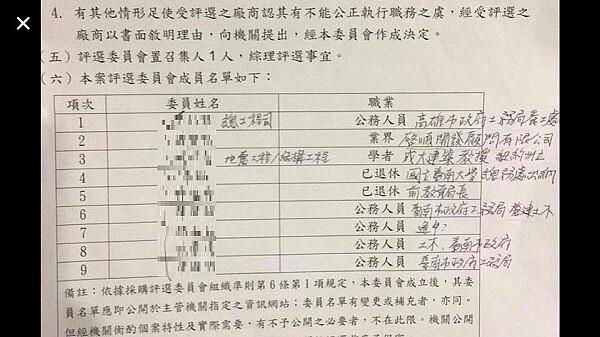 4. 有其他情形足使受評選之廠商認其有不能公正執行職務之虞，經受評選之
廠商以書面敘明理由，向機關提出，經本委員會作成決定。
(五) 評選委員會置召集人1人，綜理評選事宜。
(六) 本案評選委員會成員名單如下：
項次 委員姓名 職業
1 總工程司 公務人員 高雄市政府工務局養工處
2 業界 啓順開發顧問有限公司
3 地震工程/結構工程 學者 成大建築教授
4 已退休 國立臺南大學總務處出納
5 已退休 前教育局長
6 公務人員 臺南市政府工務局
7 公務人員
8 公務人員 臺南市政府
9 公務人員 臺南市政府工務局
備註：依據採購評選委員會組織準則第6條第1項規定，本委員會成立後，其委
員名單應即公開於主管機關指定之資訊網站；委員名單有變更或補充者，亦同。
但經機關衡酌個案特性及實際需要，有不予公開之必要者，不在此限。機關公開